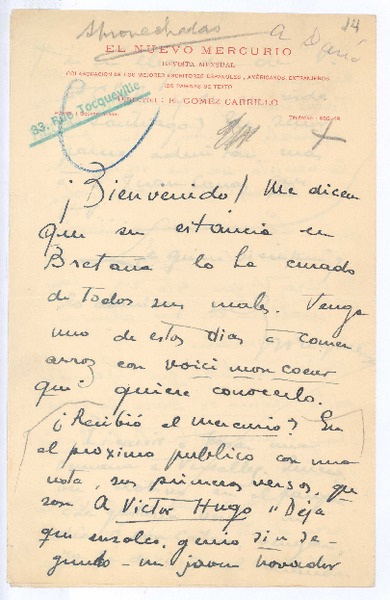 Aprovechadas
A Darío
14
EL NUEVO MERCURIO
REVISTA MENSUAL
COLABORACIÓN DE LOS MEJORES ESCRITORES ESPAÑOLES, AMERICANOS, EXTRANJEROS
DIRECTOR: E. GÓMEZ CARRILLO
83, Rue Tocqueville
¡Bienvenido! Me dicen
que su estancia en
Bretaña lo ha curado
de todos sus males. Venga
uno de estos días a comer
arroz con voici mon coeur
que quiere conocerlo.
¿Recibió el mercurio? En
el próximo publico con una
nota, sus primeros versos, que
son A Victor Hugo "Deja
que ensalce, genio sin se-
gundo — un joven trovador